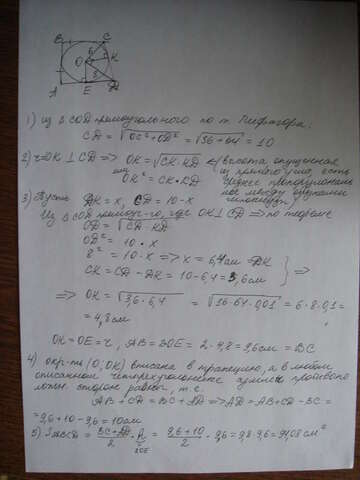 B C
6
O K
8
A E D
1) из △ COD прямоугольного по т. Пифагора.
CD = √OC² + OD² = √36 + 64 = 10
2) r = OK ⊥ CD => OK = √CK · KD высота опущенная
или OK² = CK · KD из прямого угла, есть
среднее пропорциональн.
3) Пусть DK = x, CD = 10 - x между
Из △ COD прямоуг-го, где OK ⊥ CD => по теореме
OD = √CD · KD
OD² = 10 · x
8² = 10 · x => x = 6,4 см = DK
CK = CD - DK = 10 - 6,4 = 3,6 см } =>
=> OK = √3,6 · 6,4 = √36 · 64 · 0,01 = 6 · 8 · 0,1 =
= 4,8 см
OK = OE = r, AB = 2OE = 2 · 4,8 = 9,6 см
4) окр-ть (O; OK) вписана в трапецию, а в любом
описанном четырехугольнике суммы противопо-
ложн. сторон равны, т.е.
AB + CD = BC + AD => AD = AB + CD - BC =
= 9,6 + 10 - 9,6 = 10 см
5) SABCD = BC + AD / 2 · h = 9,6 + 10 / 2 · 9,6 = 9,8 · 9,6 = 94,08 см²
2OE